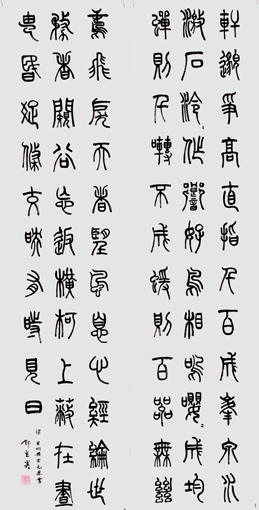 軒邈爭高直指千百成峯泉水
激石泠〻作響好鳥相鳴嚶〻成均
蟬則千囀不窮蝯則百嘂無絕
鳶飛戾天者望峯息心經綸世
務者闚谷忘返橫柯上蔽在晝
猶昏疏條交映有時見日
吳均與朱元思書